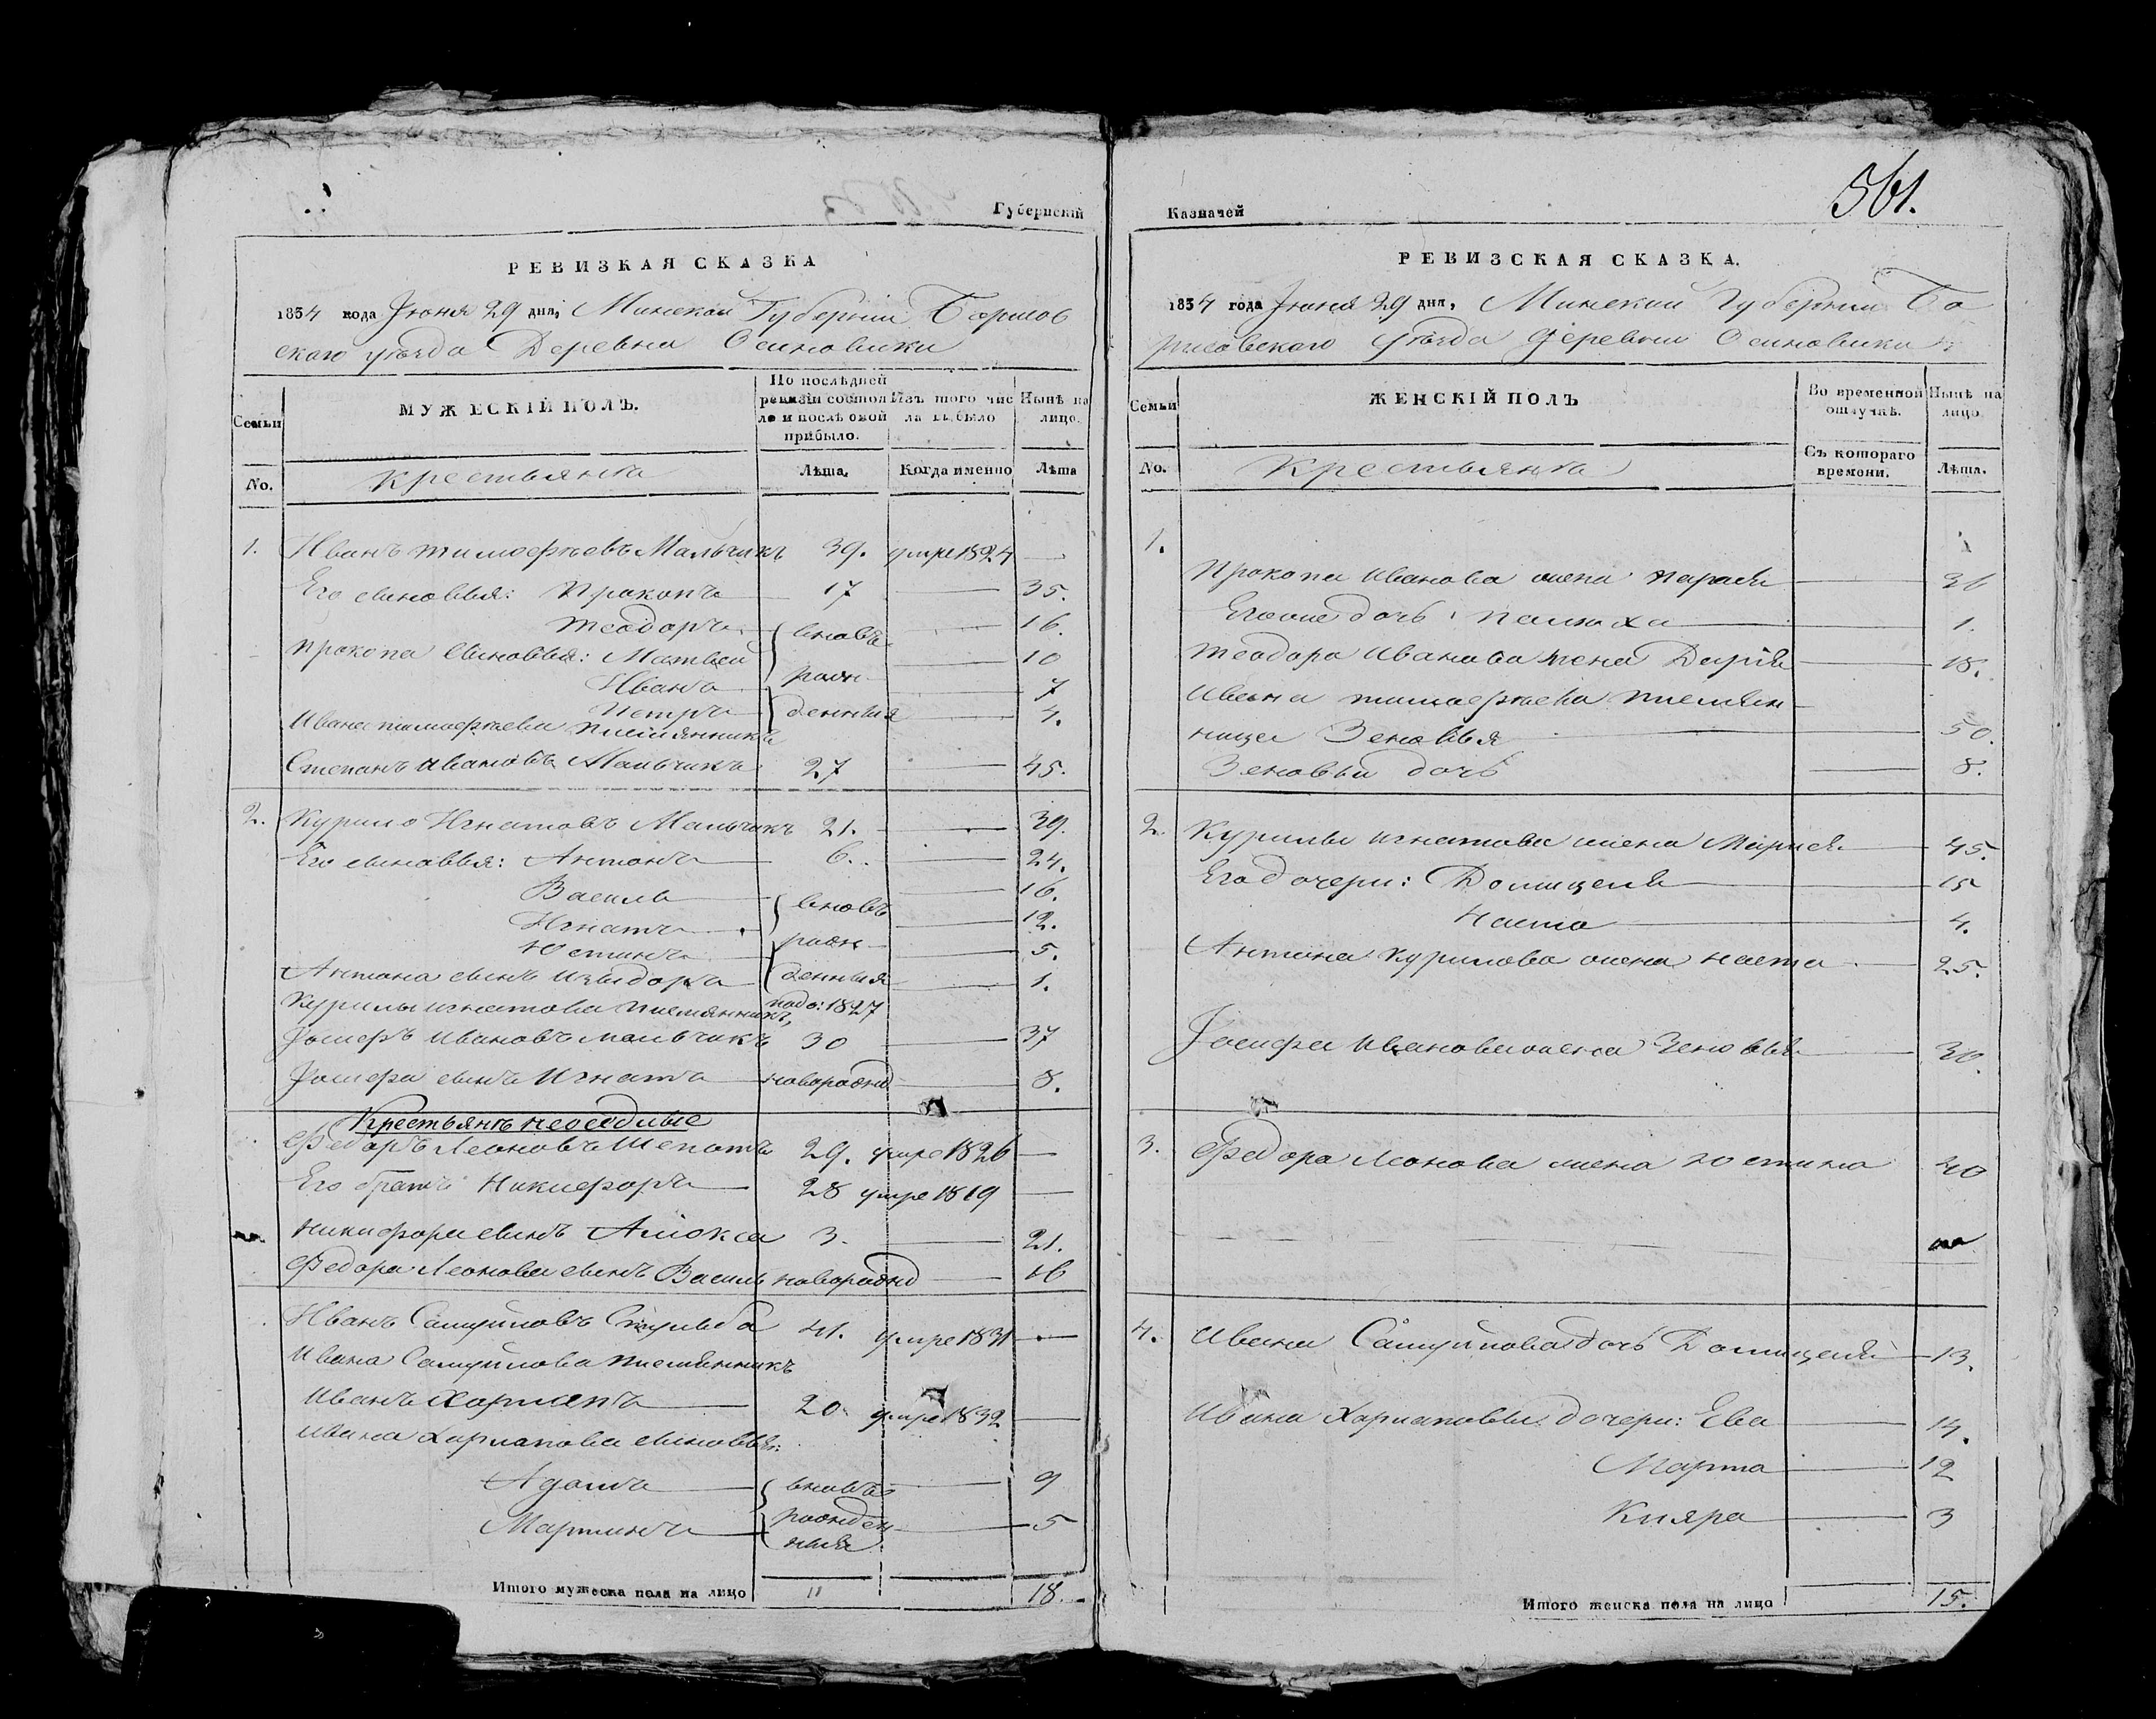 Губернскій
РЕВИЗКАЯ СКАЗКА
1834 года Іюня 29 дня, Минской Губерніи Борисов
скаго уѣзда Деревни Осиновики
Семьи
МУЖЕСКІЙ ПОЛЪ.
По послѣдней ревизіи состоя ло и послѣ оной прибыло.
Изъ того чис ла выбыло
Нынѣ на лицо.
No.
Крестьянѣ
Лѣта.
Когда именно
Лѣта
1. Иванъ тимофѣевъ Мальчикъ 39. умре 1824 —
Его сыновья: Прокопъ 17 — 35.
теодоръ вновь — 16.
прокопа сыновья: Матвей — 10
Иванъ рожд — 7
Петръ денныя — 4.
Ивана тимофѣева племянникъ
Степанъ Ивановъ Мальчикъ 27 — 45.
2. Курило Игнатовъ Мальчикъ 21. — 39.
Его сыновья: Антонъ 6. — 24.
Василь — 16.
Игнатъ вновь — 12.
Юстинъ рожд — 5.
Антона сынъ Изыдоръ денныя — 1.
Курилы игнатова племянникъ, подо: 1827
Іосифъ Ивановъ мальчикъ 30 — 37
Іосифа сынъ Игнатъ новорожд — 8.
Крестьянѣ неоседлые
Федоръ Леоновъ Шепотъ 29. умре 1826 —
Его братъ Никифоръ 28 умре 1819 —
никифора сынъ Алюкса 3. — 21.
Федора Леонова сынъ Василь новорожд — 16
Иванъ Самуйловъ 41. умре 1831 —
Ивана Самуйлова племянникъ
Иванъ Харлапъ 20. умре 1832 —
Ивана Харлапова сыновья:
Адамъ вновь — 9
Мартинъ рожден — 5
ныя.
Итого мужеска пола на лицо 11 18.
Казначей
561.
РЕВИЗСКАЯ СКАЗКА.
1834 года Іюня 29 дня, Минской Губерніи Бо
рисовскаго уѣзда деревни Осиновики
Семьи
ЖЕНСКІЙ ПОЛЪ
Во временной отлучкѣ.
Нынѣ на лицо
No.
Крестьянкѣ
Съ котораго времени.
Лѣта.
1.
Прокопа Иванова жена Парася — 36
Егоже дочь: палюха — 1.
теодора Иванова жена Дарія — 18.
Ивана тимофѣева племян
ница Зеновья — 50.
Зеновьи дочь — 8.
2. Курилы игнатова жена Марися — 45.
Его дочери: Домицеля — 15
Наста — 4.
Антона Курилова жена наста — 25.
Іосифа Иванова жена Зеновья — 30.
3. Федора Леонова жена юстина 40
4. Ивана Самуйлова дочь Домицеля — 13.
Ивана Харлаповы дочери: Ева — 14.
Марта — 12
Кляра — 3
Итого женска пола на лицо 15.